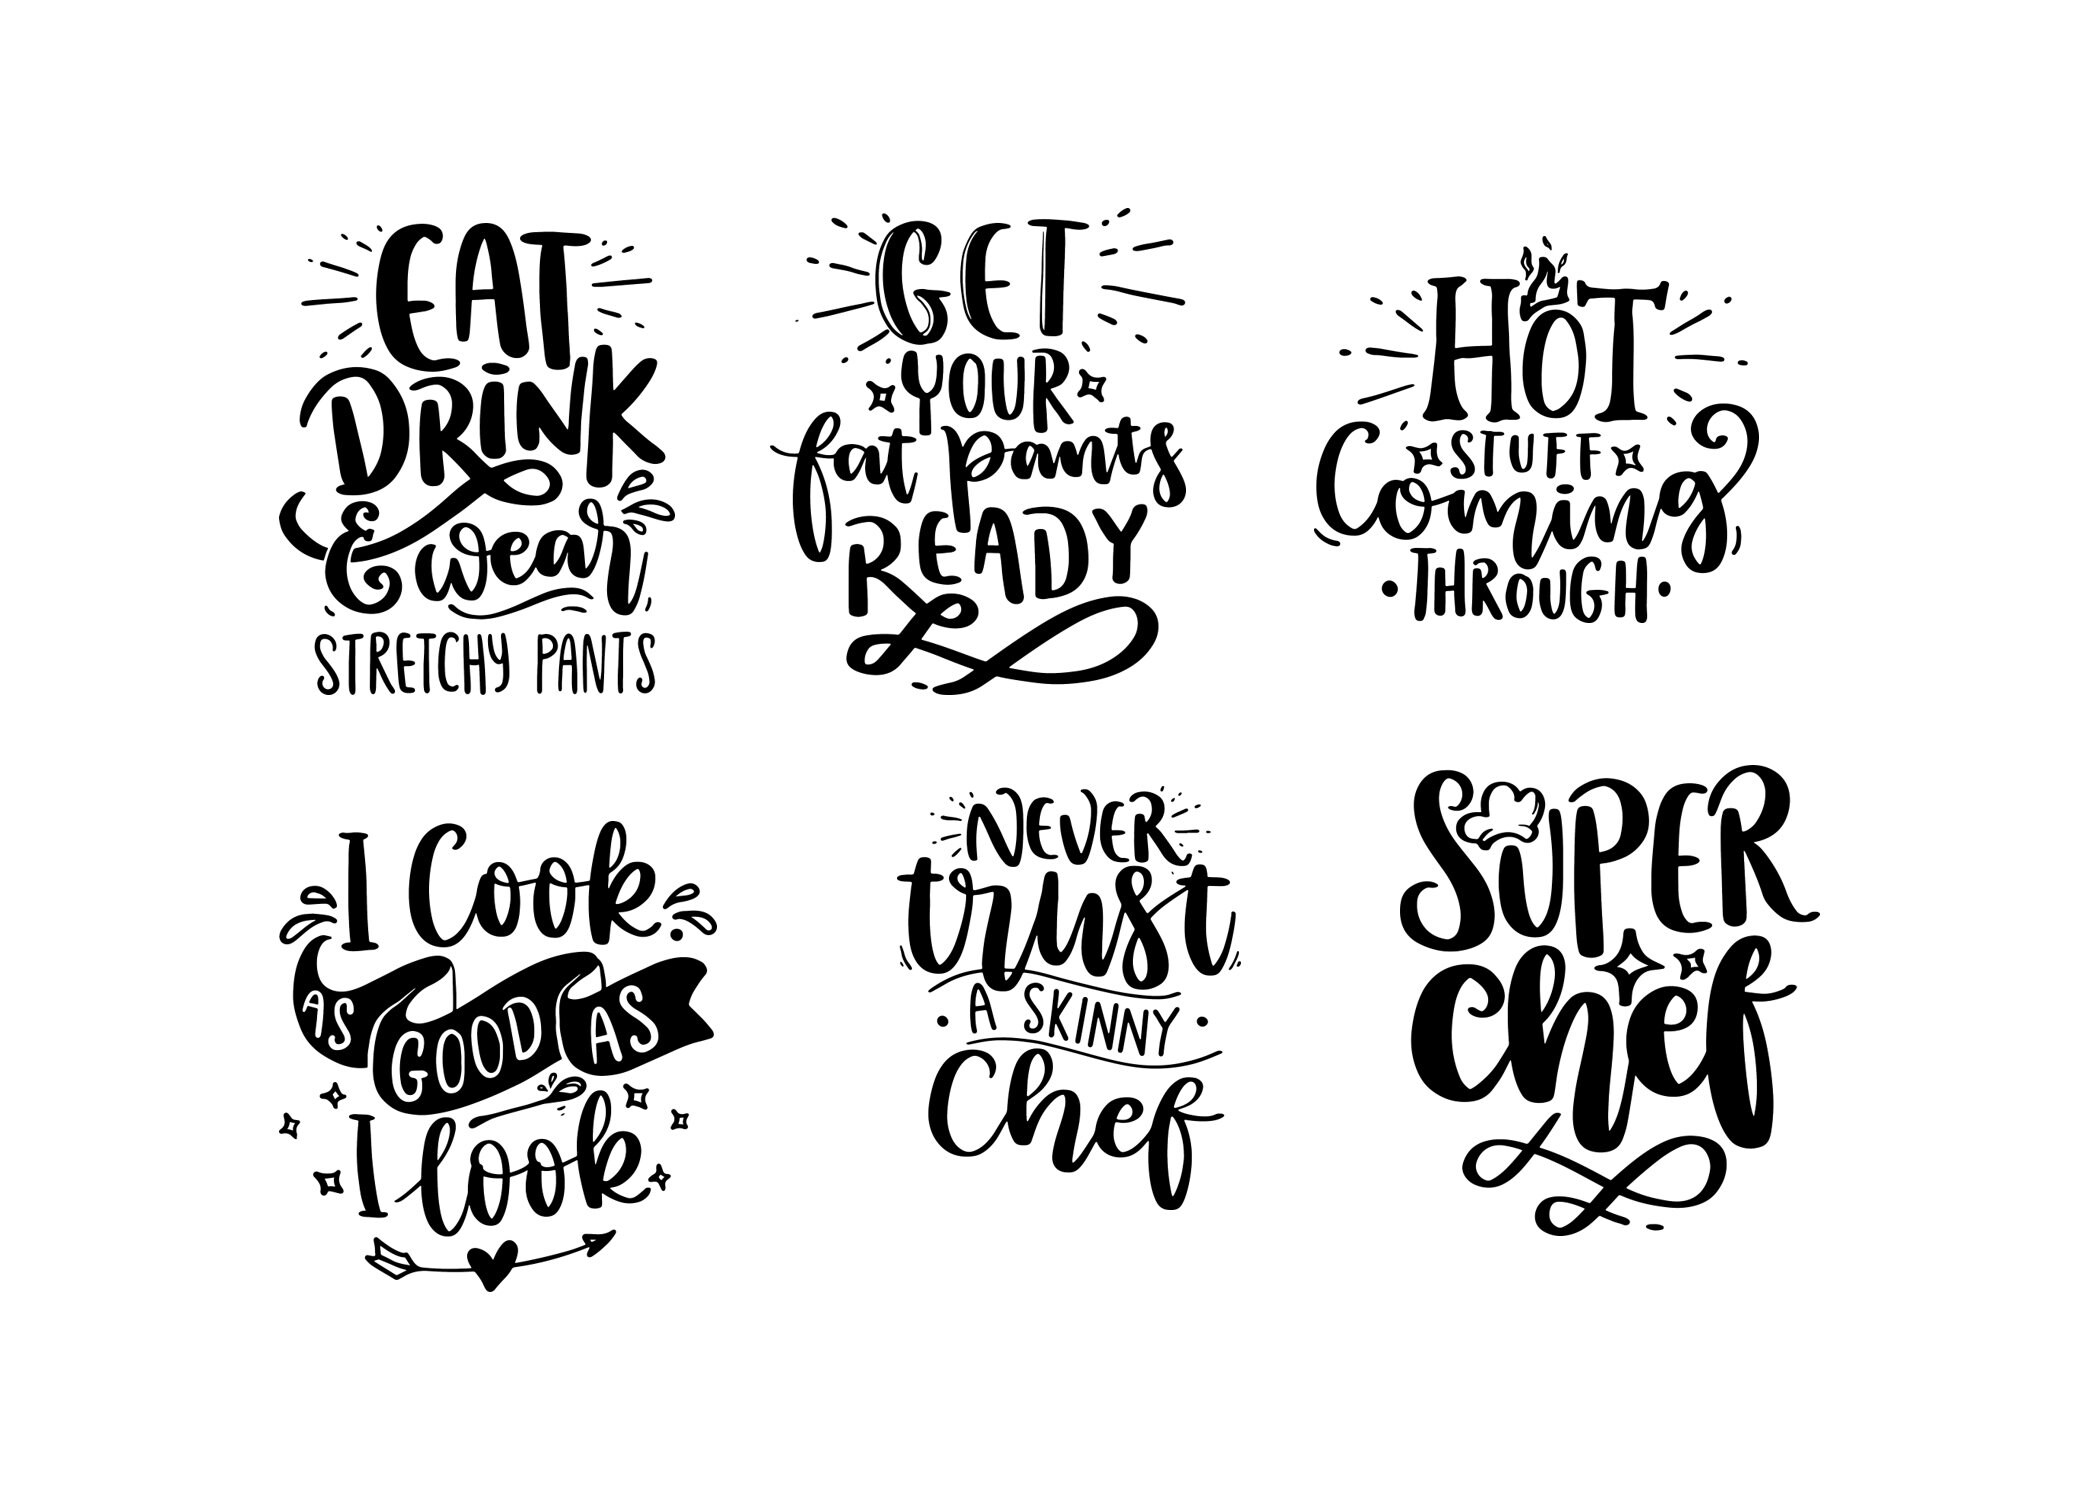 EAT
DRINK
& wear
STRETCHY PANTS
GET
YOUR
fat pants
READY
HOT
STUFF
Coming
THROUGH
I Cook
AS GOOD AS
I look
NEVER
trust
A SKINNY
Chef
SUPER
chef